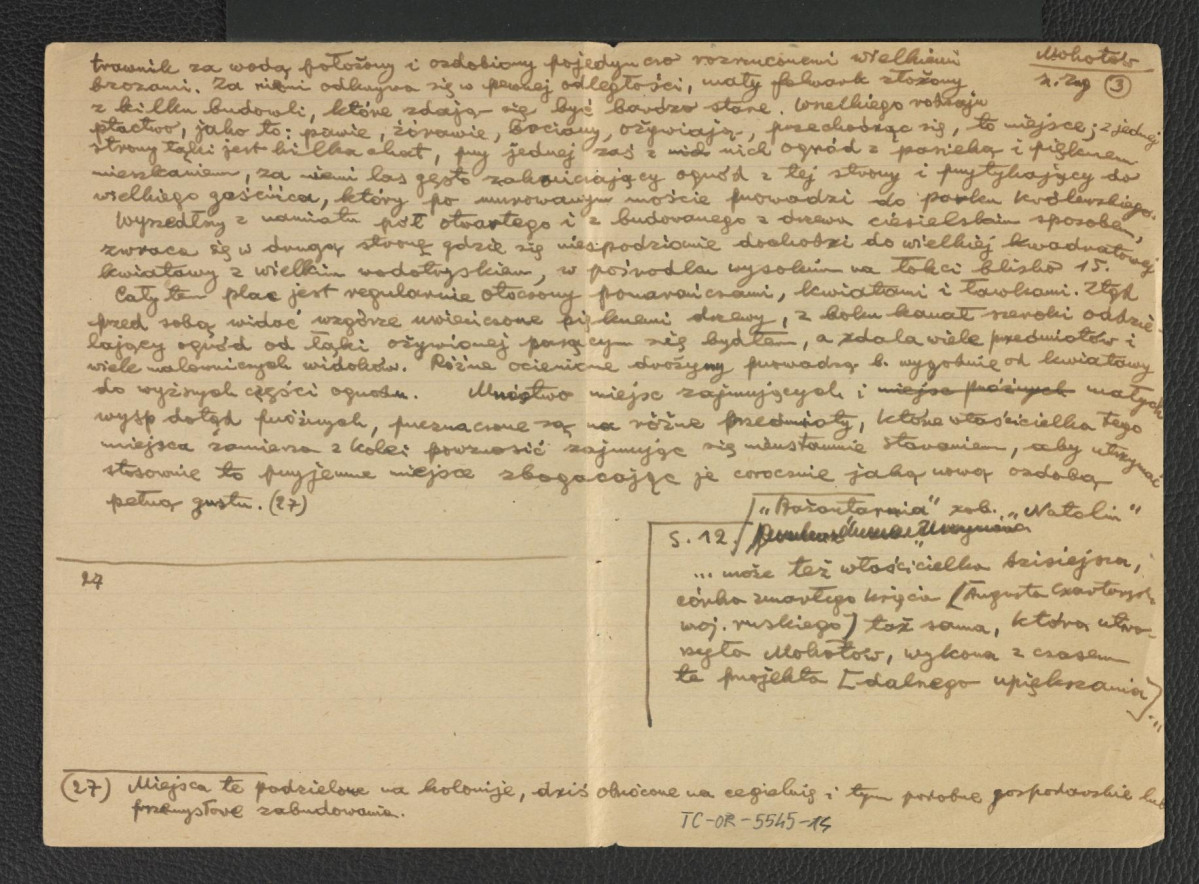 Mokotów
3
trawnik za wodą położony i ozdobiony pojedynczo rozrzuconemi wielkiemi
brzozami. Za niemi odkrywa się w pewnej odległości, mały folwark złożony
z kilku budowli, które zdają się być bardzo stare. Wszelkiego rodzaju
ptactwo, jako to: pawie, żórawie, bociany, ożywiają, przechodząc się, to miejsce; z jednej
strony łąki jest kilka chat, przy jednej zaś z nich ogród z pasieką i pięknem
mieszkaniem, za niemi las gęsto zakończający ogród z tej strony i przytykający do
wielkiego gościńca, który po murowanym moście prowadzi do parku królewskiego.
Wyszedłszy z namiotu pół otwartego i zbudowanego z drzewa ciesielskim sposobem,
zwraca się w drugą stronę gdzie się niespodzianie dochodzi do wielkiej kwadratowej
kwiatowy z wielkim wodotryskiem, w pośrodku wysokim na łokci blisko 15.
Cały ten plac jest regularnie otoczony pomarańczami, kwiatami i ławkami. Ztąd
przed sobą widać wzgórze uwieńczone pięknemi drzewy, z boku kanał szeroki oddzie-
lający ogród od łąki ożywionej pasącym się bydłem, a zdala wiele przedmiotów i
wiele malowniczych widoków. Różne ocienione drożyny prowadzą b. wygodnie od kwiatowy
do wyższych części ogrodu. Mnóstwo miejsc zajmujących i miejsc próżnych małych
wysp dotąd próżnych, przeznaczone są na różne przedmioty, które właścicielka tego
miejsca zamierza z kolei powznosić zajmując się nieustannie staraniem, aby utrzymać
stosownie to przyjemne miejsce zbogacając je corocznie jaką nową ozdobą
pełną gustu. (27)
"Bażantarnia" zob. "Natolin"
S. 12.
... może też właścicielka dzisiejsza,
córka zmarłego księcia [Augusta Czartorysk.
woj. ruskiego] taż sama, która utwo-
rzyła Mokotów, wykona z czasem
te projekta [dalnego upiększania]...
27
(27) Miejsca te podzielone na kolonije, dziś obrócone na cegielnię i tym podobne gospodarskie lub
przemysłowe zabudowania.
TC-OR-5545-14